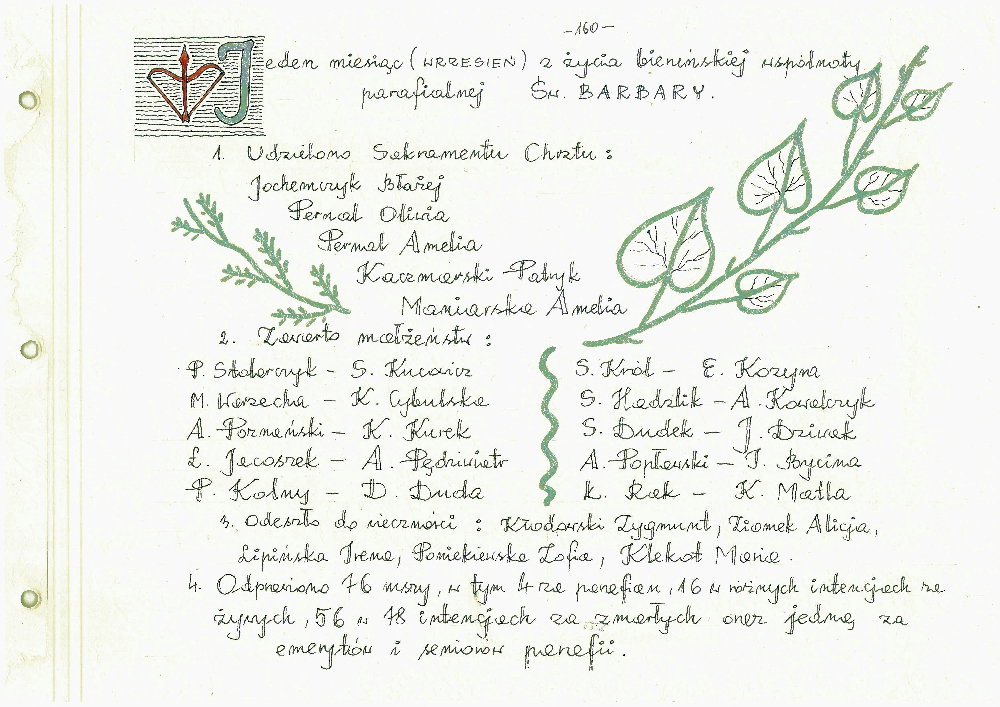 -160-
Jeden miesiąc (WRZESIEŃ) z życia bienińskiej wspólnoty
parafialnej Św. BARBARY.
1. Udzielono Sakramentu Chrztu :
Jochemczyk Błażej
Permal Oliwia
Permal Amelia
Kaczmarski Patryk
Maniarska Amelia
2. Zawarto małżeństw :
P. Stolarczyk - S. Kucowicz
M. Warzecha - K. Cybulska
A. Poznański - K. Kurek
Ł. Jacoszek - A. Pędziwiatr
P. Kolny - D. Duda
S. Król - E. Kozyra
S. Hadzlik - A. Kowalczyk
S. Dudek - J. Dziwak
A. Popławski - J. Bycina
Ł. Rak - K. Matla
3. Odeszło do wieczności : Kłodarski Zygmunt, Ziomek Alicja,
Lipińska Irena, Poniekiewska Zofia, Klekot Maria.
4. Odprawiono 76 mszy, w tym 4 za parafian, 16 w różnych intencjach za
żywych, 56 w 78 intencjach za zmarłych oraz jedną za
emerytów i seniorów parafii.